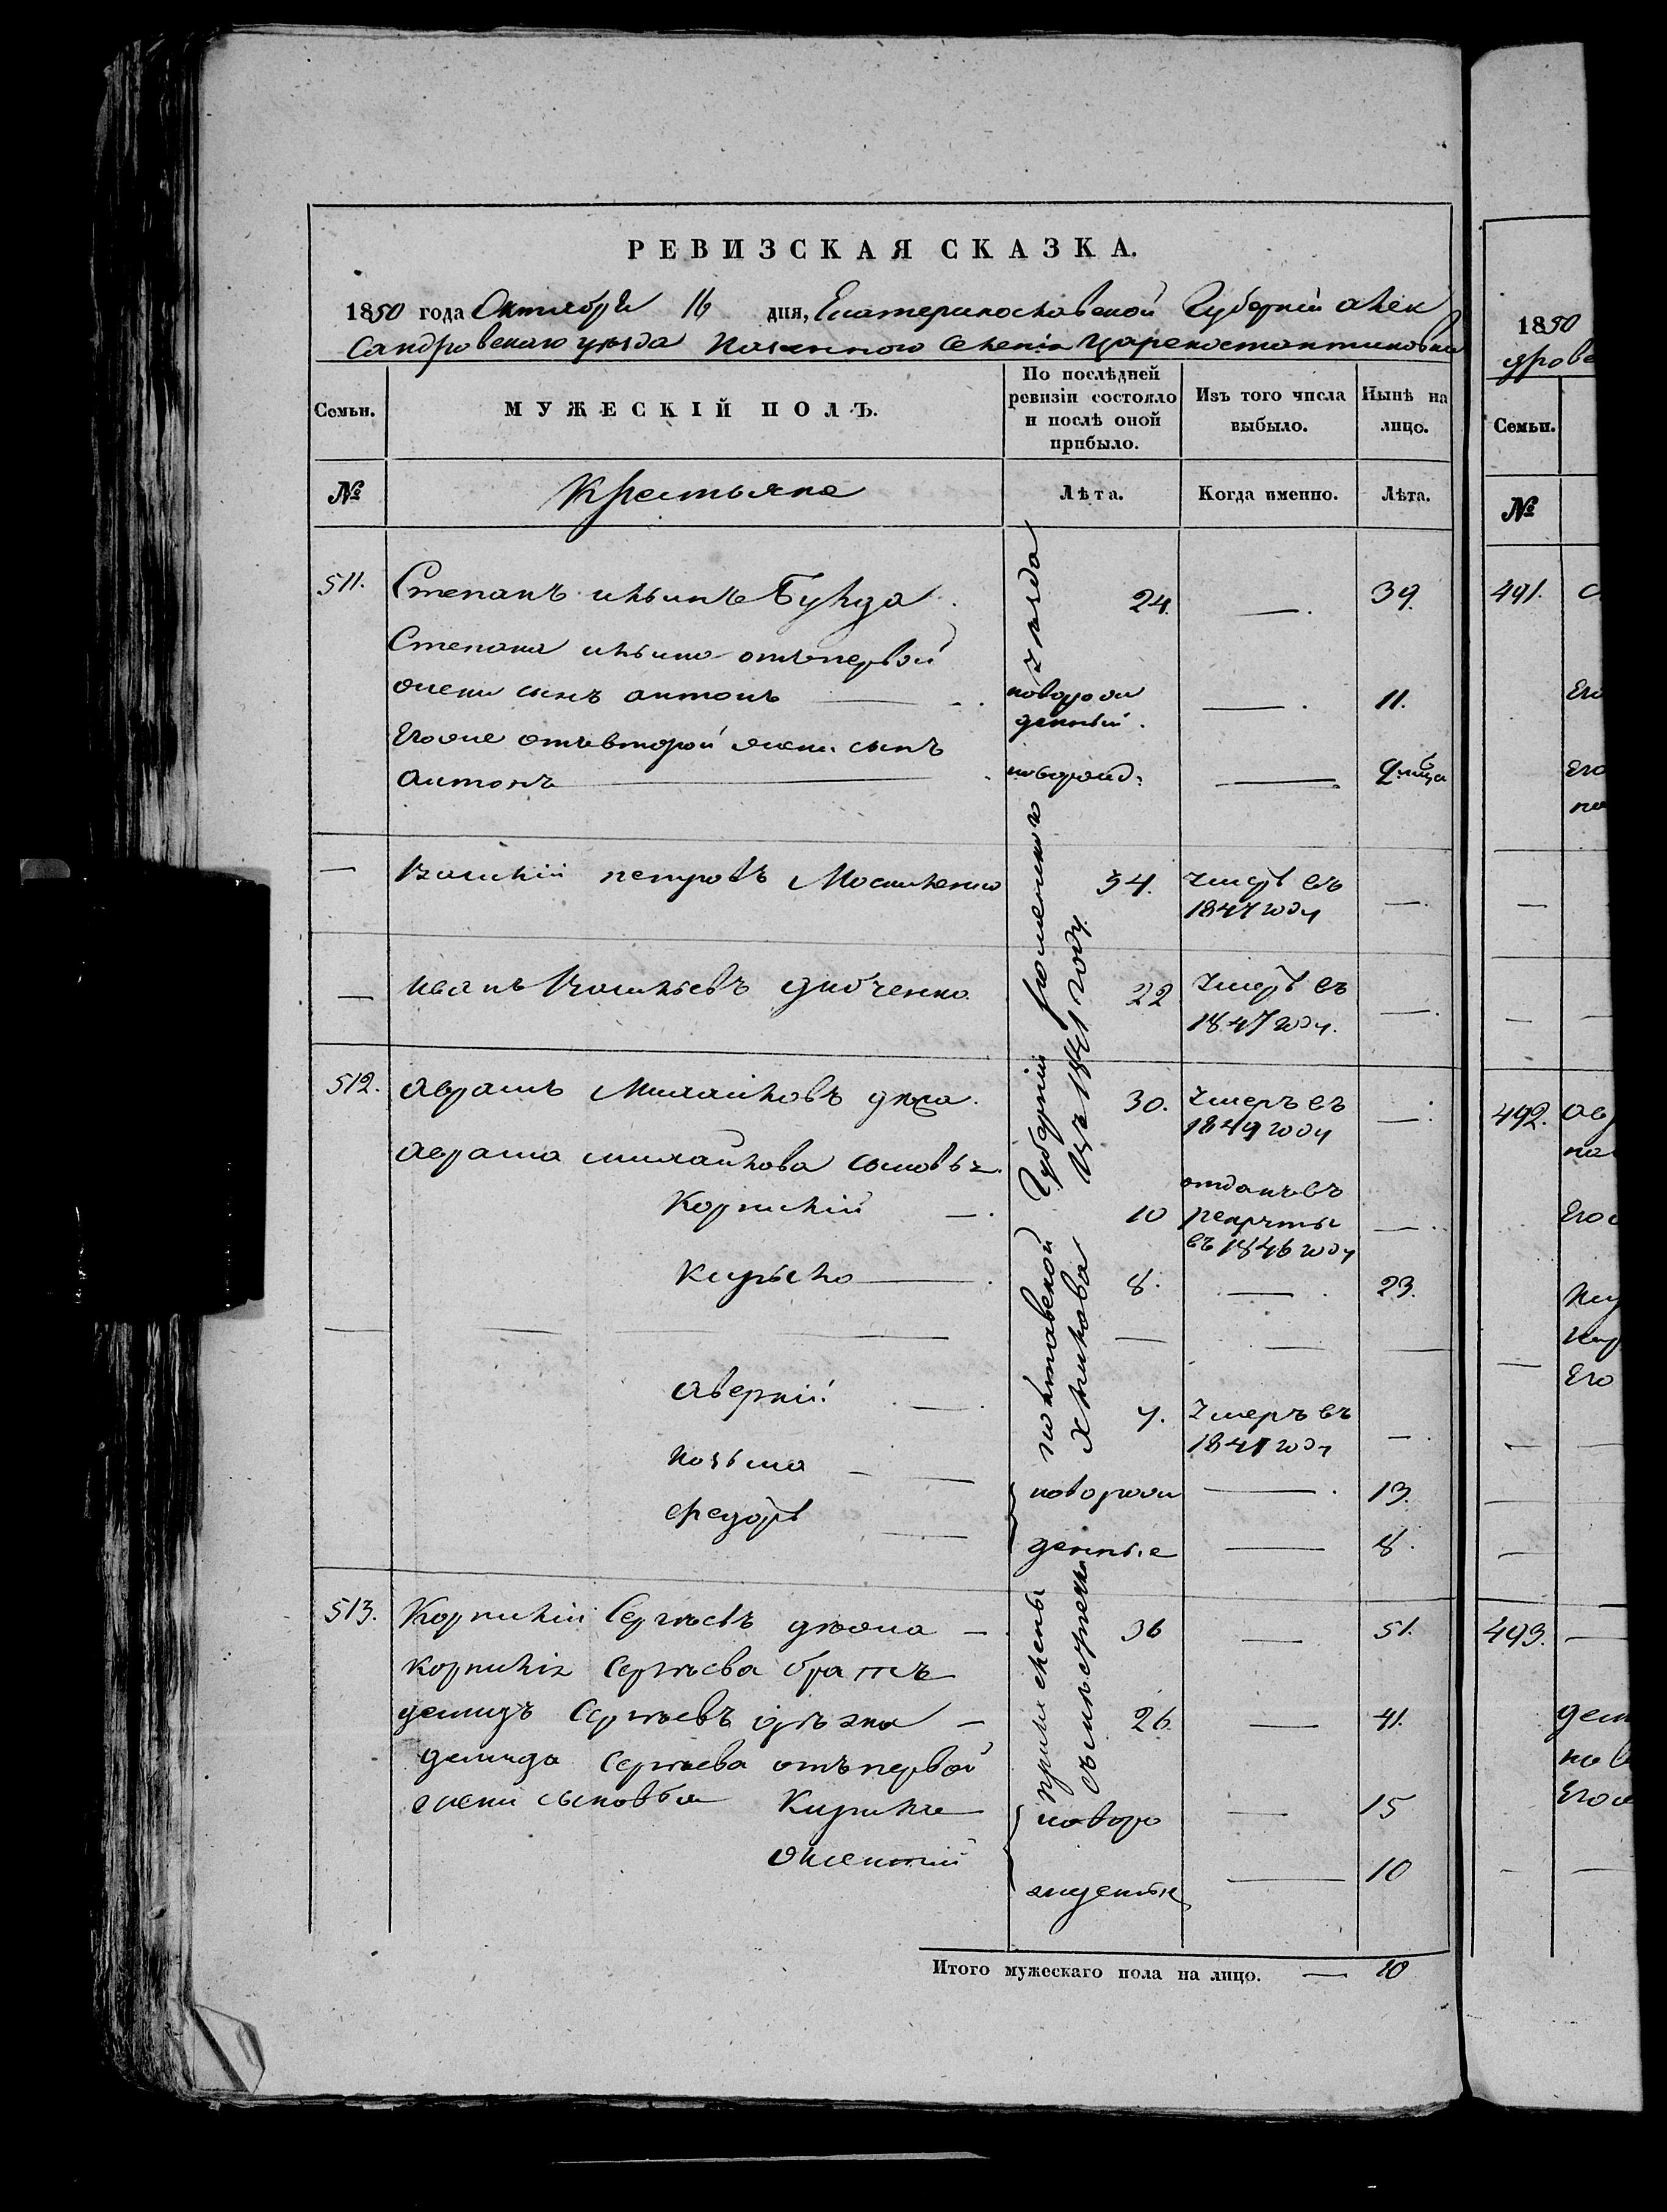 РЕВИЗСКАЯ СКАЗКА.
1850 года Октября 16 дня, Екатеринославской Губерніи Алек
сандровскаго уезда казенного селенія Цареконстантиновки
Семьи.
МУЖЕСКІЙ ПОЛЪ.
По послѣдней
ревизіи состояло
и послѣ оной
прибыло.
Изъ того числа
выбыло.
Нынѣ на
лицо.
№
Крестьяне
Лѣта.
Когда именно.
Лѣта.
511. Степанъ ильинъ 24. — 39.
Степана ильина отъ первой
жены сынъ антонъ — новорож
денный. — 11.
Егоже отъ второй жены сынъ
антонъ — новорожд: —
— Василій петровъ 34. умеръ въ
1847 году —
— иванъ Васильевъ 22 умеръ въ
1847 году. —
512. аврамъ михайловъ 30. умеръ въ
1849 году —
аврама михайлова сыновья
Корнилій — 10 отданъ въ
рекруты
въ 1846 году —
Кирыло — 8. — 23.
аверкій — 7. умеръ въ
1841 году —
козьма — новорож — 13.
федоръ — денные — 8.
513. Корнилій Сергѣевъ — 36 — 51.
корнилія Сергѣева братъ
демидъ Сергѣевъ — 26. — 41.
демида Сергѣева отъ первой
жены сыновья Кирило новоро — 15
жденные — 10
полтавской Губерніи роменского уезда
въ 1841 году
причислены
Итого мужескаго пола на лицо. — 10
1850
Семьи.
№
491.
492.
493.